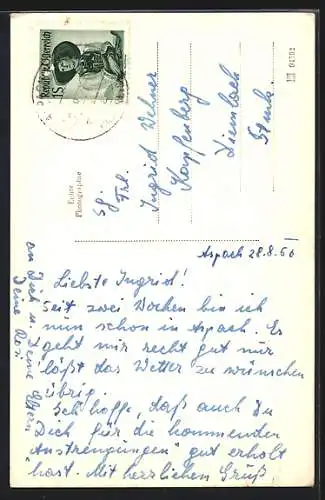 Republik Österreich
1S
Echte
Photographie
Frl.
Ingrid
Kapfenberg
Diemlach
Stmk.
Aspach 28.8.60
Liebste Ingrid!
Seit zwei Wochen bin ich
nun schon in Aspach. Es
geht mir recht gut nur
läßt das Wetter zu wünschen
übrig.
Ich hoffe, daß auch Du
Dich für die kommenden
Anstrengungen gut erholt
hast. Mit herzlichen Grüß,
an Dich u. Deine Eltern
Deine Rosi